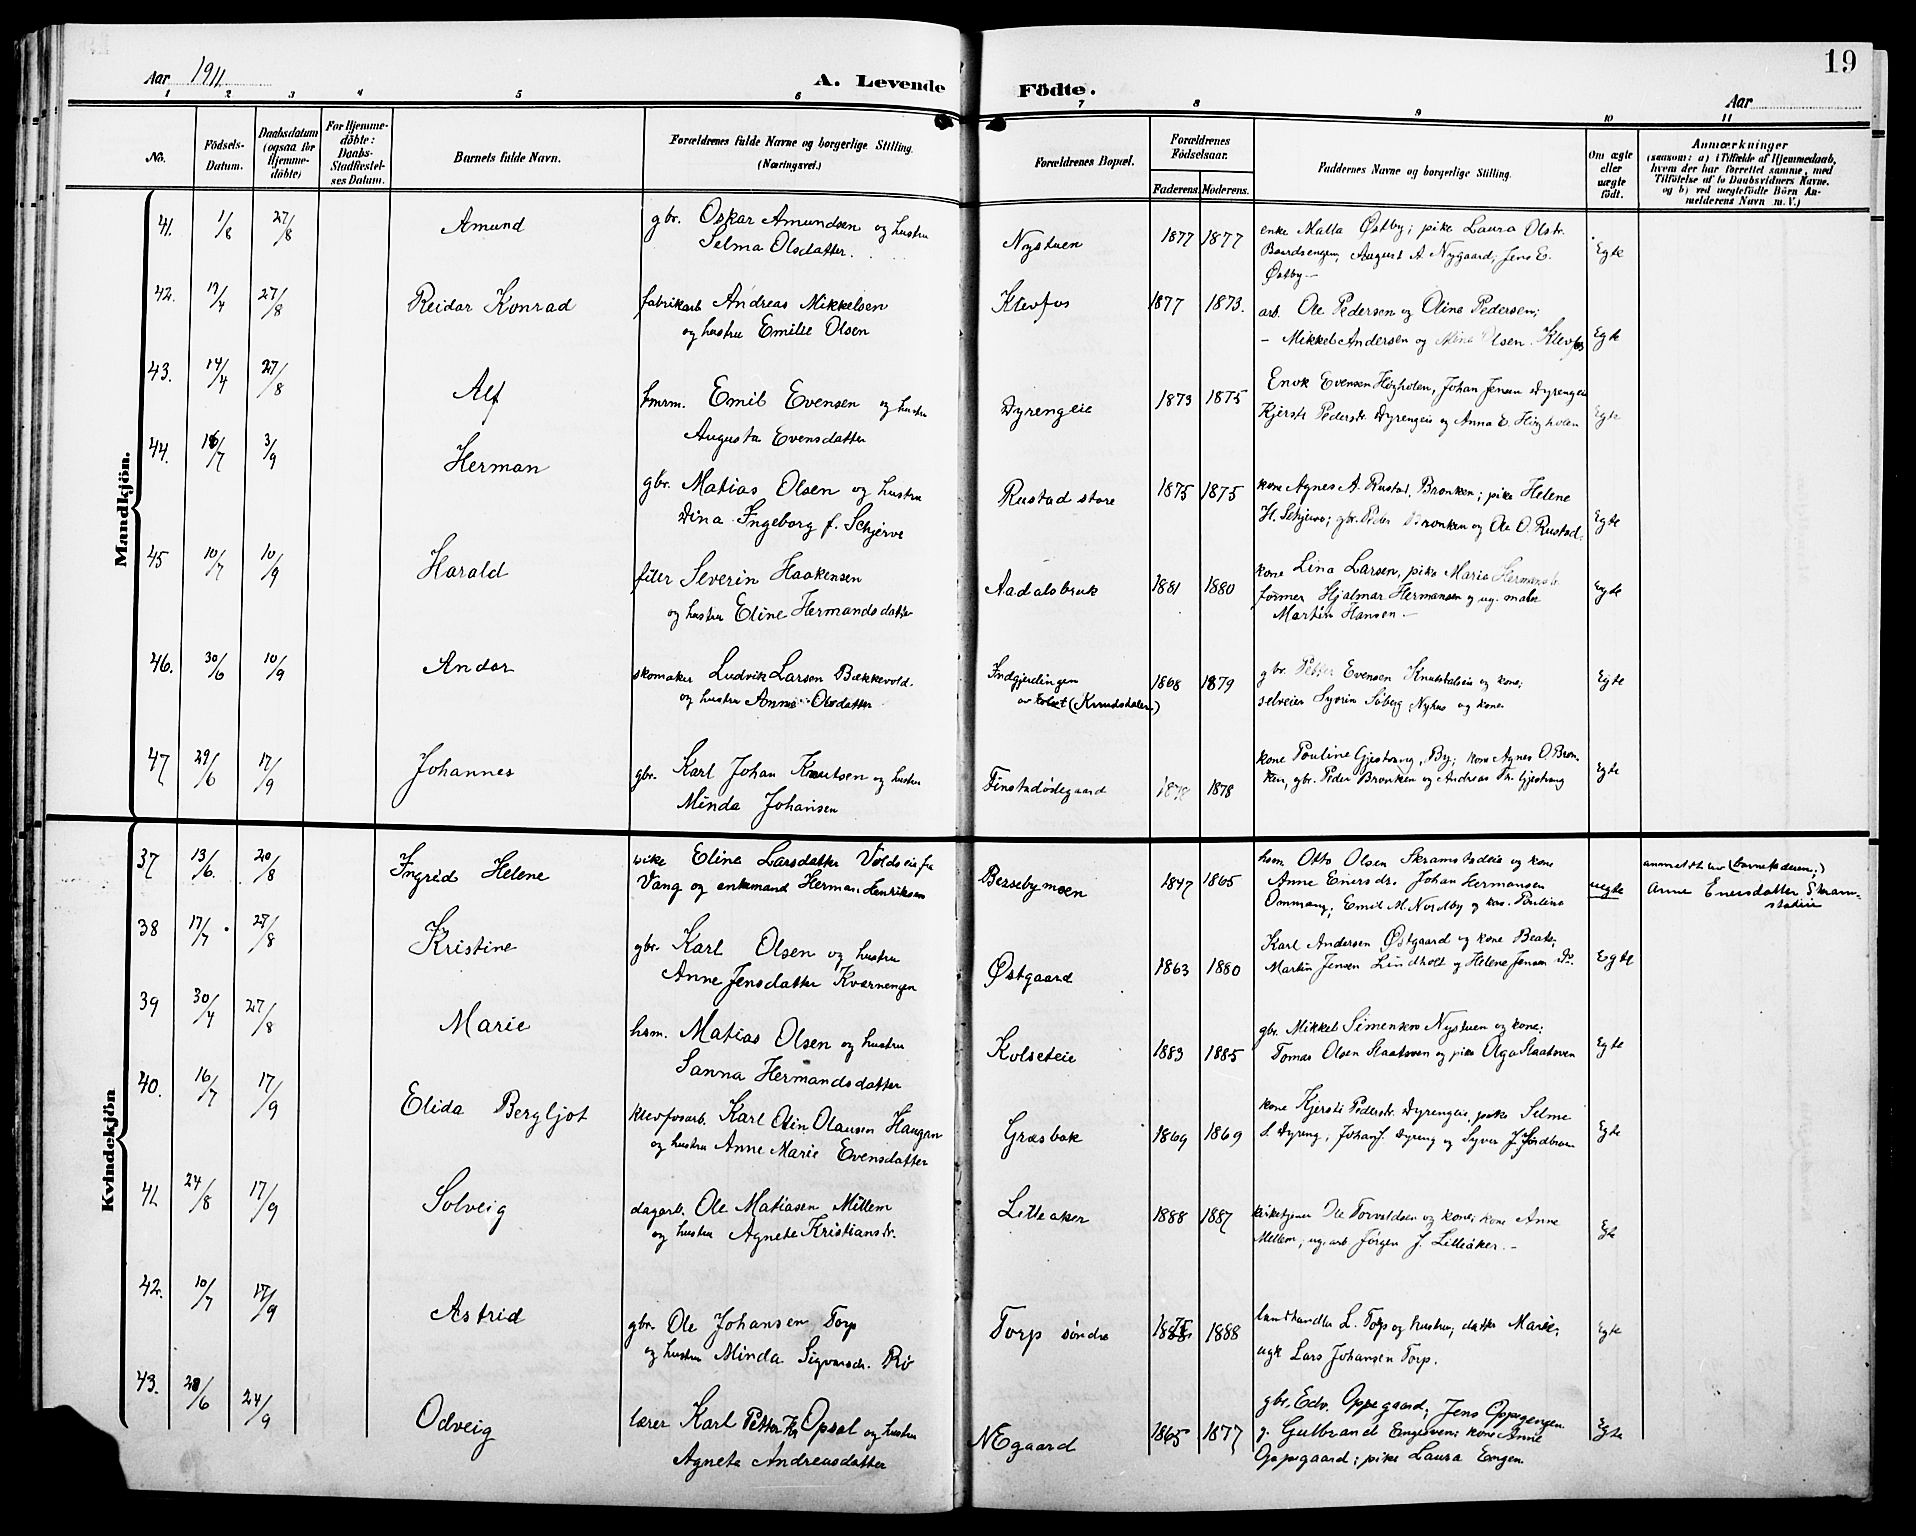 19
Aar 1911
A. Levende Födte.
Aar
1 2 3 4 5 6 7 8 9 10 11
No.
Födsels-Datum.
Daabsdatum (ogsaa for Hjemme-döbte)
For Hjemme-döbte: Daabs-Stadfæstel-ses Datum.
Barnets fulde Navn.
Forældrenes fulde Navne og borgerlige Stilling. (Næringsvei.)
Forældrenes Bopæl.
Forældrenes Födselsaar.
Faderens. Moderens.
Faddernes Navne og borgerlige Stilling.
Om ægte eller uægte födt.
Anmærkninger
(saasom: a) i Tilfælde af Hjemmedaab,
hvem der har forrettet samme, med
Tilföielse af to Daabsvidners Navne.
og b) ved uægtefödte Börn An-
melderens Navn m. V.)
Mandkjön.
41. 1/8 27/8 Amund gbr. Oskar Amundsen og hustru Nystuen 1877 1877 enke Matla Østby; pike Laura Olstr.
Selma Olsdatter. Baardsengen, August A. Nygaard, Jens E. Egte
Østby –
42. 17/4 27/8 Reidar Konrad fabrikarb Andreas Mikkelsen Klevfos 1877 1873. arb. Ole Pedersen og Oline Pedersen;
og hustru Emilie Olsen – Mikkel Andersen og Olsen. Klevfos Egte
43. 14/4 27/8 Alf Emil Evensen og hustru Dyrengeie 1873 1875 Enok Evensen Høgholen, Johan Jensen Dyrengeie
Augusta Evensdatter Kjersti Pederstr. Dyrengeie og Anna E. Høgholen Egte
44. 16/7 3/9 Herman gbr. Matias Olsen og hustru Rustad store 1875 1875 kone Agnes A. Rustad, Bronken; pike Helene
Dina Ingeborg f. Schjerve H. Schjerve; gbr. Peder Bronken og Ole O. Rustad. Egte
45 10/7 10/9 Harald filer Severin Haakensen Aadalsbruk 1881 1880 kone Lina Larsen, pike Marie Hermanstr.
og hustru Eline Hermandsdatter former Hjalmar Hermansen og ug. maler Egte
Martin Hansen –
46. 30/6 10/9 Andor skomaker Ludvik Larsen Bækkevold. Indgjerdingen 1868 1879 gbr. Petter Evensen Knutstaleie og kone; Egte
og hustru Anne Olsdatter av Kolset (Knudsdalen) selveier Syverin Søberg Nyhus og kone
47 29/6 17/9 Johannes gbr. Karl Johan Knutsen og hustru Finstadødegaard 1878 1878 kone Pauline Gjestvang, By; kone Agnes O. Bron-
Minda Johansen ken, gbr. Peder Bronken og Andreas Gjestvang Egte
Kvindekjön
37 13/6. 20/8 Ingrid Helene pike Eline Larsdatter Voldseie fra Bersebymoen 1847 1865 hsm. Otto Olsen Skramstadeie og kone
Vang og enkemand Herman Henriksen Anne Enersdr. Johan Hermansen uegte
Ommang; Emil M. Nordby og kone Pauline
anmeldt av (barnefaderen;)
Anne Enersdatter Skram-
stadeie
38 17/7 27/8 Kristine gbr. Karl Olsen og hustru Østgaard 1863 1880 Karl Andersen Østgaard og kone Beate;
Anne Jensdatter Kværnengen Martin Jensen Lindholt og Helene Jensen Egte
39 30/4 27/8 Marie hsm. Matias Olsen og hustru Kolseteie 1883 1885 gbr. Mikkel Simensen Nystuen og kone;
Sanna Hermandsdatter Tomas Olsen Staatsveen og pike Olga Staatsveen Egte
40. 16/7 17/9 Elida Bergljot klevfosarb. Karl Olin Olausen Haugen Græsbak 1869 1869 kone Kjersti Pederstr. Dyrengeie, pike Selme
og hustru Anne Marie Evensdatter S. Dyreng, Johan J. Dyreng og Syver J. Egte
41. 24/8 17/9 Solveig dagarb. Ole Matiasen Millem Lilleaker 1888 1887 kirketjener Ole Torvaldsen og kone; kone Anne
og hustru Agnete Kristianstr. Mellem; ug. arb Jörgen J. Lilleåker. – Egte
42. 10/7 17/9 Astrid gbr. Ole Johansen Torp Torp söndre 1888 landhandler L. Torp og hustru; datter Marie;
og hustru Minda Sigvarsdr. Rö ugk Lars Johansen Torp. Egte
43. 28/6 24/9 Odveig lærer Karl Petter Opsal og hustru NEgaard 1865 1877 gbr. Edv. Oppegaard; Jens Oppegengen
Agneta Andreasdatter g. Gulbrand Engeven; kone Anne Egte
Oppegaard; pike Laura Engen